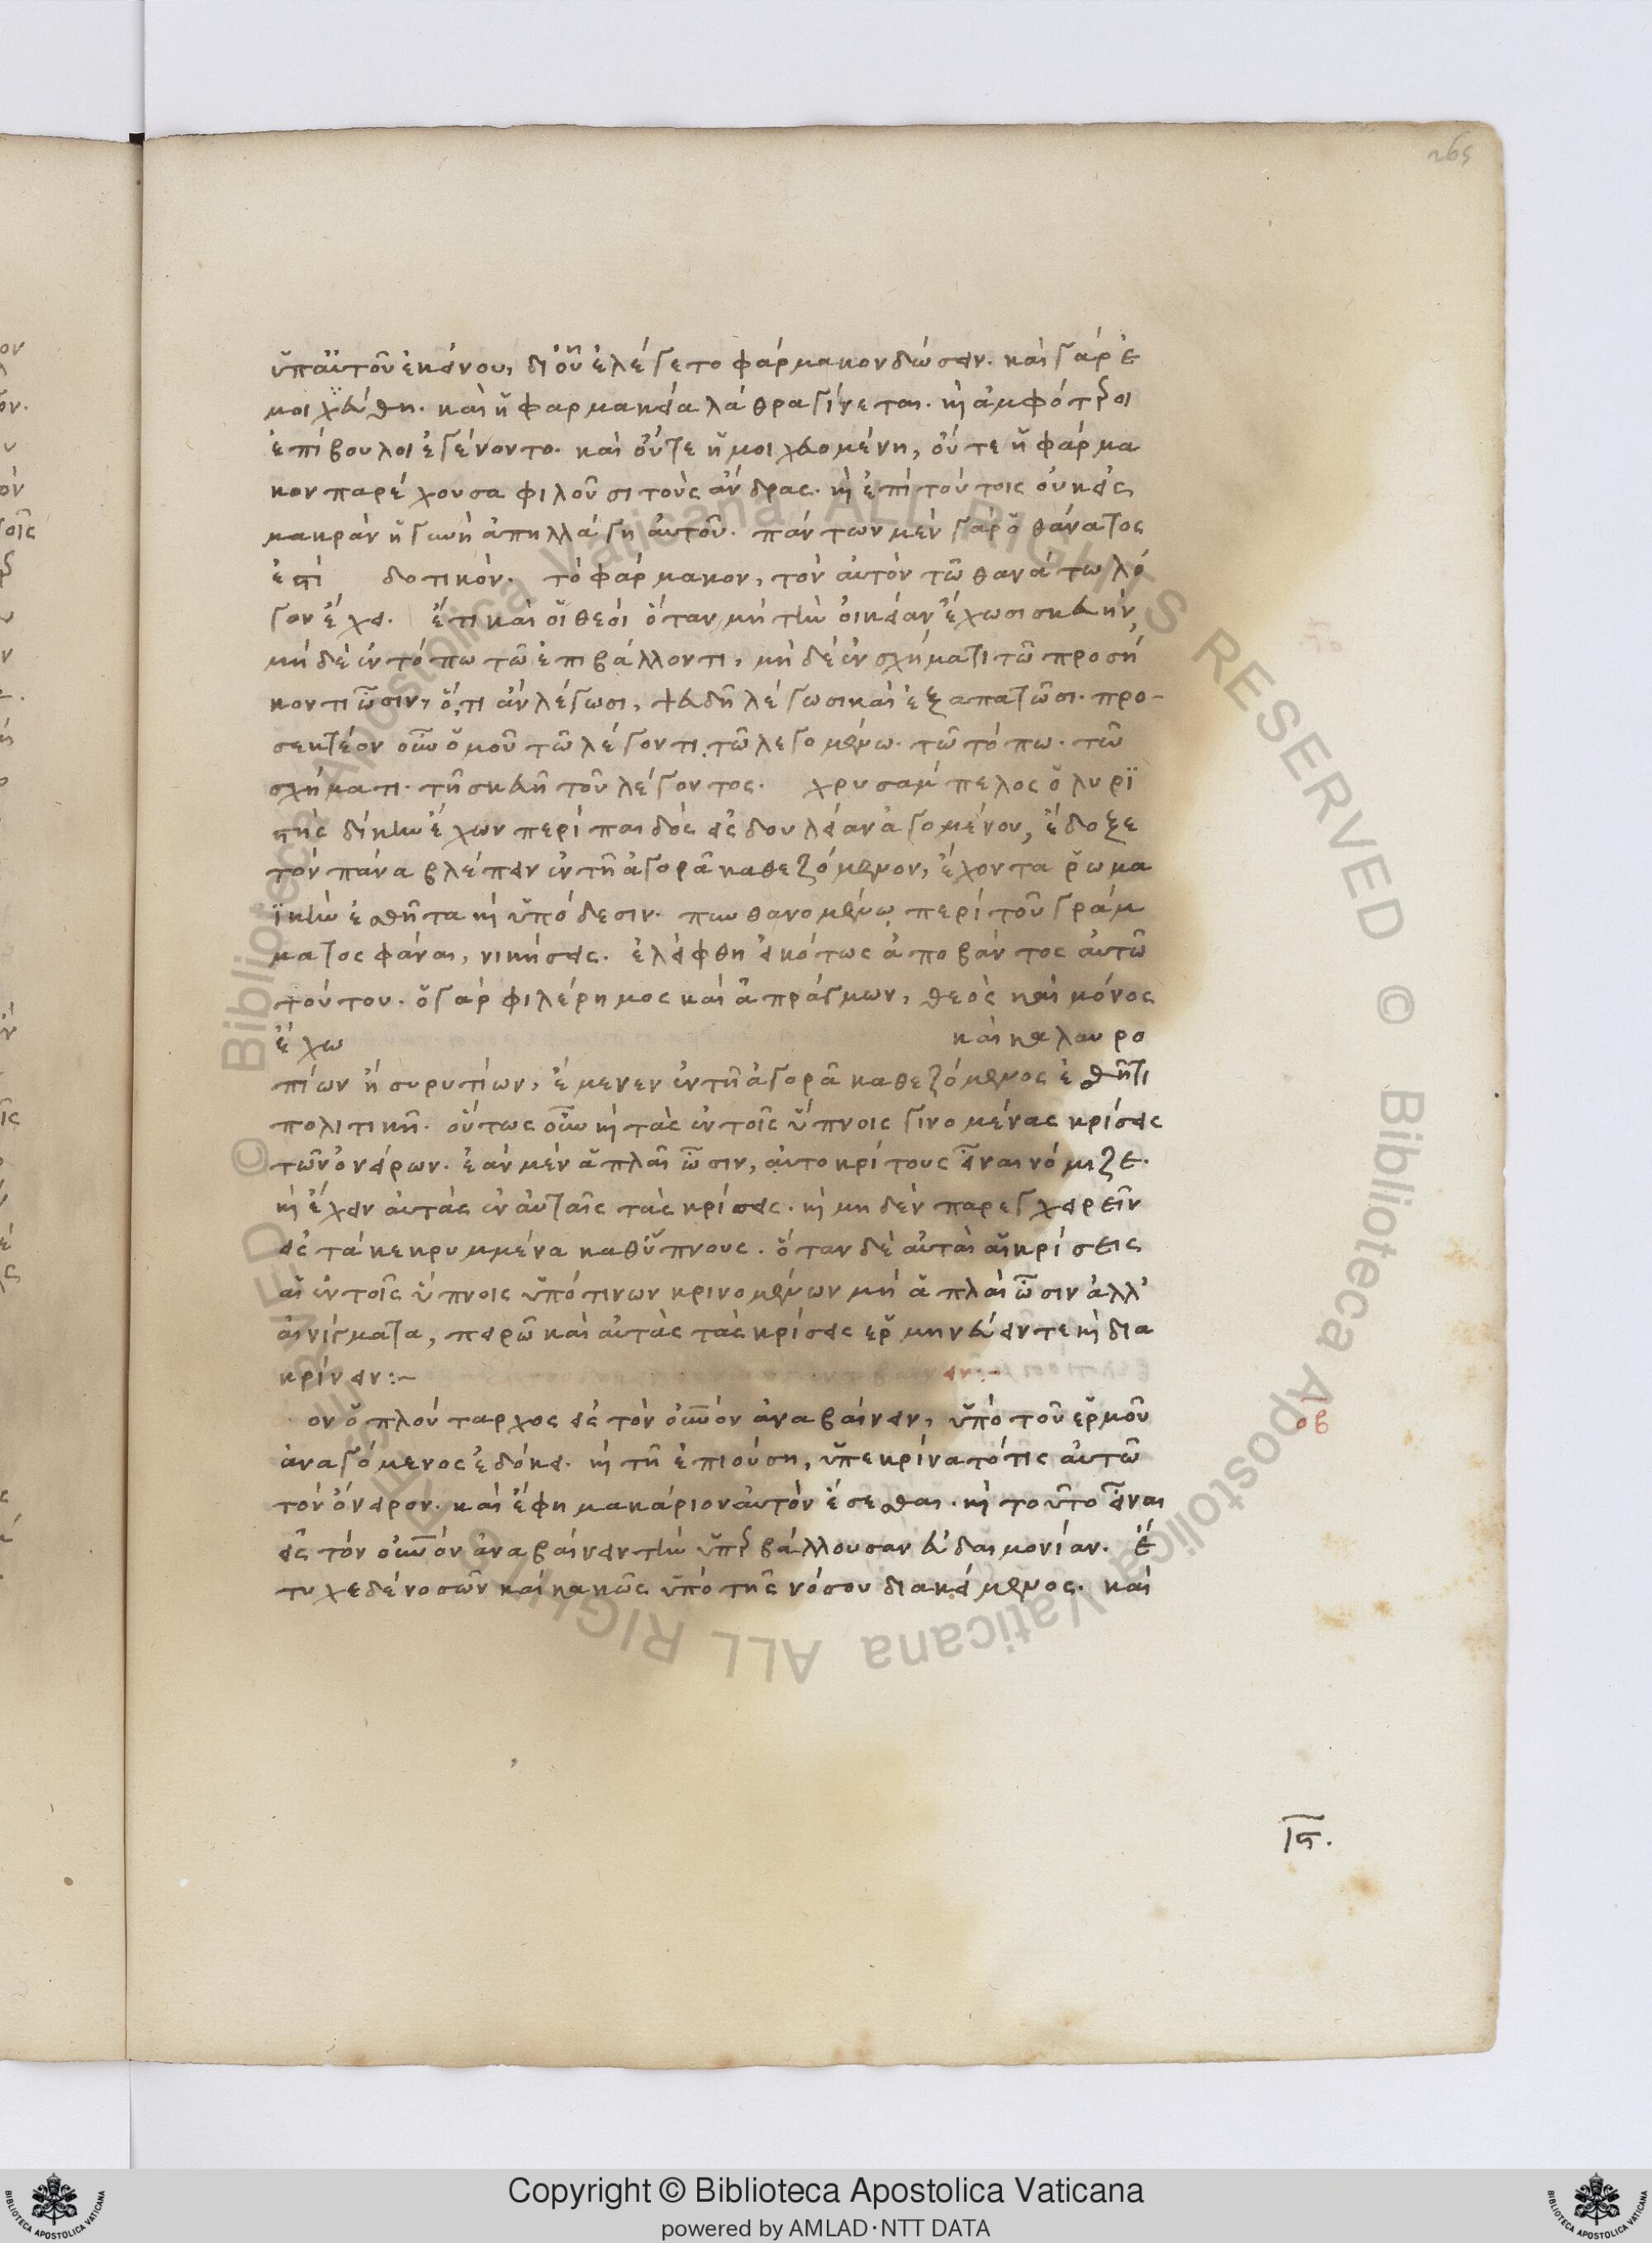 265
ὑπ' αὐτοῦ ἐκείνου, δι' οὗ ἐλέγετο φάρμακον δώσειν. καὶ γὰρ ἐ
μοιχεύθη. καὶ ἡ φαρμακεία λάθρα γίνεται. κὶ ἀμφότεροι
ἐπίβουλοι ἐγένοντο. καὶ οὔτε ἡ μοιχευομένη, οὔτε ἡ φάρμα
κον παρέχουσα φιλοῦσι τοὺς ἄνδρας. κὶ ἐπὶ τούτοις οὐκ εἰς
μακρὰν ἡ γυνὴ ἀπηλλάγη αὐτοῦ. πάντων μὲν γὰρ ὁ θάνατος
ἐπὶ δοτικόν. τὸ φάρμακον, τὸν αὐτὸν τῶ θανάτω λό
γον ἔχει. ἔτι καὶ οἱ θεοὶ ὅταν μὴ τὴν οἰκείαν ἔχωσι σκευήν,
μὴ δὲ ἐν τόπω τῶ ἐπιβάλλοντι, μὴ δὲ ἐν σχήματι τῶ προσή
κοντι ὦσιν, ὅ,τι ἀν λέγωσι, ψευδῆ λέγωσι καὶ ἐξαπατῶσι. προ-
σεκτέον οὖν ὁμοῦ τῶ λέγοντι, τῶ λεγομένω. τῶ τόπω. τῶ
σχήματι. τῆ σκευῆ τοῦ λέγοντος. χρυσάμπελος ὁ λυρϊ
στὴς δίκην ἔχων περὶ παιδὸς εἰς δουλείαν ἀγομένου, ἔδοξε
τὸν πάνα βλέπειν ἐν τῆ ἀγορᾶ καθεζόμενον, ἔχοντα ῥωμα
ϊκὴν ἐσθῆτα κὶ ὑπόδεσιν. πυνθανομένω περὶ τοῦ γράμ
ματος φάναι, νικήσεις. ἐλείφθη εἰκότως ἀποβάντος αὐτῶ
τούτου. ὁ γὰρ φιλέρημος καὶ ἀπράγμων, θεὸς καὶ μόνος
ἔχω καὶ καλαυρο
πίων ἢ συρυτίων, ἔμενεν ἐν τῆ ἀγορᾶ καθεζόμενος ἐσθῆτι
πολιτικῆ. οὕτως οὖν κὶ τὰς ἐν τοῖς ὕπνοις γινομένας κρίσεις
τῶν ὀνείρων. ἐὰν μὲν ἁπλαῖ ὦσιν, αὐτοκρίτους εἶναι νόμιζε.
κὶ ἔχειν αὐτὰς ἐν αὐταῖς τὰς κρίσεις. κὶ μηδὲν παρεγχειρεῖν
εἰς τὰ κεκρυμμένα καθ' ὕπνους. ὅταν δὲ αὐταὶ αἱ κρίσεις
αἱ ἐν τοῖς ὕπνοις ὑπό τινων κρινομένων μὴ ἁπλαὶ ὦσιν ἀλλ'
αἰνίγματα, πειρῶ καὶ αὐτὰς τὰς κρίσεις ἑρμηνεύειν τε κὶ δια
κρίνειν:-
ον ὁ πλούταρχος εἰς τὸν οὐνὸν ἀναβαίνειν, ὑπὸ τοῦ ἑρμοῦ
ἀναγόμενος ἐδόκει. κὶ τῆ ἐπιούση, ὑπεκρίνατό τις αὐτῶ
τὸν ὄνειρον. καὶ ἔφη μακάριον αὐτὸν ἔσεσθαι. κὶ τοῦτο εἶναι
εἰς τὸν οὐνὸν ἀναβαίνειν τὴν ὑπερβάλλουσαν εὐδαιμονίαν. ἐ
τυχε δὲ νοσῶν καὶ κακῶς ὑπὸ τῆς νόσου διακείμενος. καὶ
οβ
ις.
© Biblioteca Apostolica Vaticana ALL RIGHTS RESERVED
Copyright © Biblioteca Apostolica Vaticana
powered by AMLAD·NTT DATA